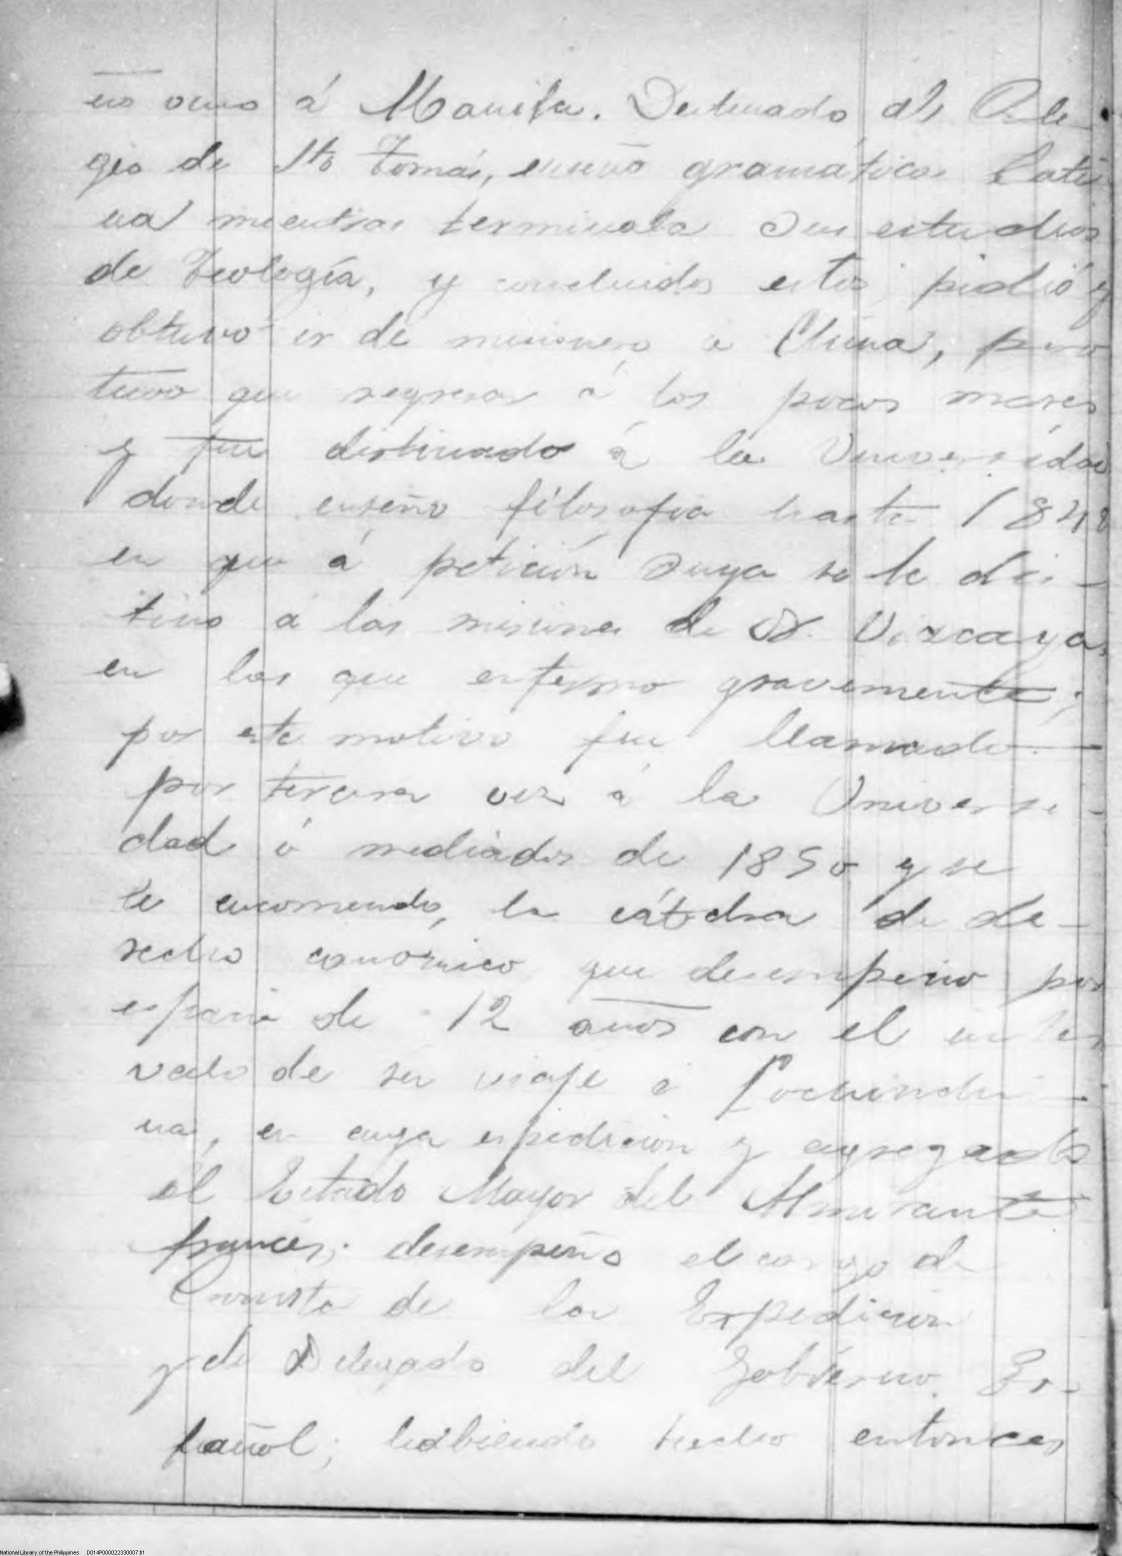 mo año á Manila. Destinado al Cole-
gio de Sto Tomás, enseñó gramática Lati
na mientras terminaba sus estudios
de Teología, y concluidos estos pidió y
obtuvo ir de misionero a China, pero
tuvo que regresar á los pocos meses
y fue destinado á la Universidad
donde enseño filosofia hasta 1848
en que á petición suya se le des-
tino a las misiones de N. Vizcaya,
en las que enfermo gravemente;
por este motivo fue llamado
por tercera vez á la Universi-
dad á mediados de 1850 y se
le encomendó, la cátedra de de-
recho canónico que desempeño por
espacio de 12 años con el inter
valo de su viaje á Cochinchi-
na, en cuya espedicion y agregado
al Estado Mayor del Almirante
francés; desempeño el cargo de
Cronista de la Expedicion
y de Delegado del Gobierno Es-
pañol; habiendo hecho entonces
National Library of the Philippines D014P000022330007.tif